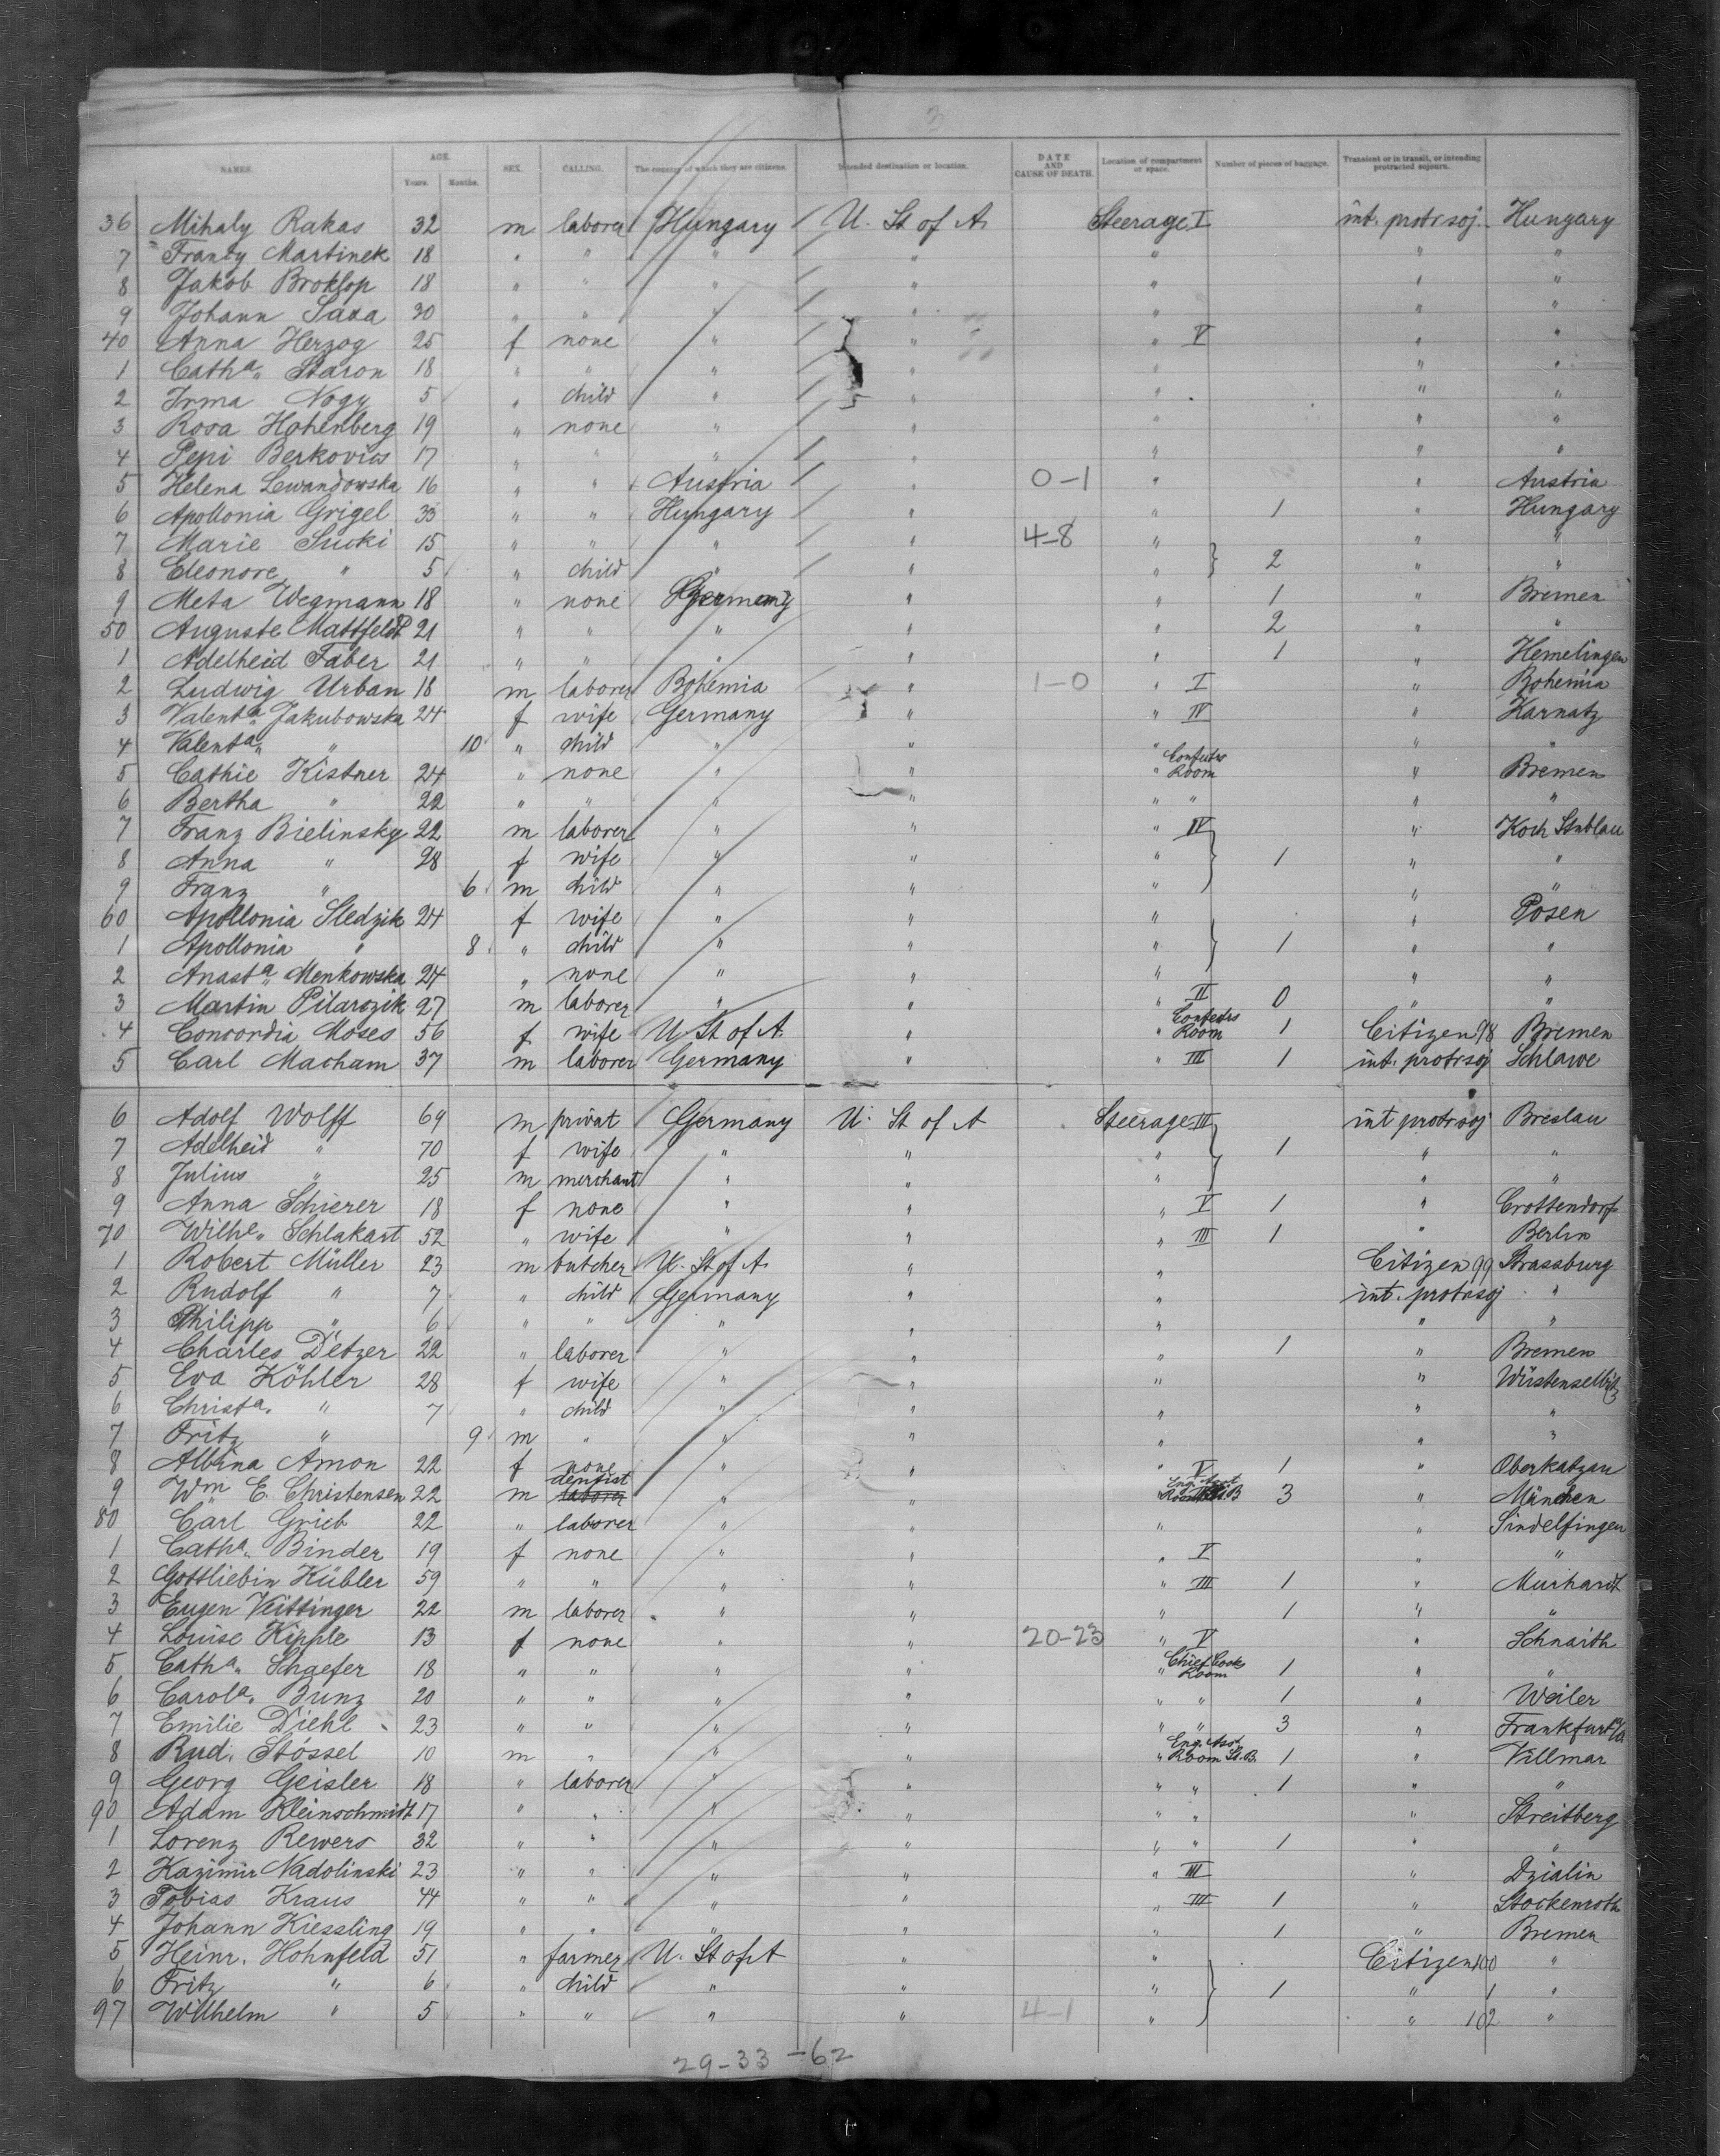 3
NAMES. AGE. Years. Months. SEX. CALLING. The country of which they are citizens. Intended destination or location. DATE AND CAUSE OF DEATH. Location of compartment or space. Number of pieces of baggage. Transient or in transit, or intending protracted sojourn.
36 Mihaly Rakas 32 m laborer Hungary U. St of A. Steerage I int. protr soj. Hungary
7 Franz Martinek 18 " " " " " " "
8 Jakob Brokłop 18 " " " " " " "
9 Johann Saxa 30 " " " " " " "
40 Anna Herzog 25 f none " " " V " "
1 Catha. Staron 18 " " " " " " "
2 Irma Nogy 5 " child " " " " "
3 Rosa Hohenberg 19 " none " " " " "
4 Pepi Berkovics 17 " " " " " " "
5 Helena Lewandowska 16 " " Austria " 0-1 " " Austria
6 Apollonia Grigel 35 " " Hungary " " 1 " Hungary
7 Marie Sucki 15 " " " " 4-8 " " "
8 Eleonore " 5 " child " " " 2 " "
9 Meta Wegmann 18 " none Germany " " 1 " Bremen
50 Auguste Mattfeldt 21 " " " " " 2 " "
1 Adelheid Faber 21 " " " " " 1 " Hemelingen
2 Ludwig Urban 18 m laborer Bohemia " 1-0 " I " Bohemia
3 Valenta. Jakubowska 24 f wife Germany " " IV " Karnatz
4 Valenta. " 10 " child " " " " "
5 Cathie Kistner 24 " none " " " Room " Bremen
6 Bertha " 22 " " " " " " " "
7 Franz Bielinsky 22 m laborer " " " IV " Koch Stublau
8 Anna " 28 f wife " " " 1 " "
9 Franz " 6 m child " " " " "
60 Apollonia Sledzik 24 f wife " " " " Posen
1 Apollonia " 8 " child " " " 1 " "
2 Anasta. Menkowska 24 " none " " " " "
3 Martin Pilarczik 27 m laborer " " " II 0 " "
4 Concordia Moses 56 f wife U St of A. " " Room 1 Citizen 98 Bremen
5 Carl Macham 37 m laborer Germany " " III 1 int. protr soj Schlawe
6 Adolf Wolff 69 m privat Germany U. St of A Steerage III int protr soj Breslau
7 Adelheid " 70 f wife " " " 1 " "
8 Julius " 25 m merchant " " " " "
9 Anna Schierer 18 f none " " " V 1 " Crottendorf
70 Wilhe. Schlakart 52 " wife " " " III 1 " Berlin
1 Robert Müller 23 m butcher U. St of A. " " Citizen 99 Strassburg
2 Rudolf " 7 " child Germany " " int. protr soj "
3 Philipp " 6 " " " " " " "
4 Charles Detzer 22 " laborer " " " 1 " Bremen
5 Eva Köhler 28 f wife " " " " Wüstenselbitz
6 Christa. " 7 " child " " " " "
7 Fritz " 9 m " " " " " "
8 Albina Amon 22 f none " " " V 1 " Oberkatzau
9 Wm E. Christensen 22 m dentist laborer " " " 3 " München
80 Carl Grieb 22 " laborer " " " " Sindelfingen
1 Catha. Binder 19 f none " " " V " "
2 Gottliebin Kübler 59 " " " " " III 1 " Murhardt
3 Eugen Veittinger 22 m laborer " " " 1 " "
4 Louise Kipple 13 f none " " 20-23 " V " Schnaith
5 Catha. Schaefer 18 " " " " " Chief Cooks Room 1 " "
6 Carola. Bunz 20 " " " " " " 1 " Weiler
7 Emilie Diehl 23 " " " " " " 3 " Frankfurt a/M
8 Rud. Stössel 10 m " " " " Eng. Asst Room St. B. 1 " Villmar
9 Georg Geisler 18 " laborer " " " " 1 " "
90 Adam Kleinschmidt 17 " " " " " " " Streitberg
1 Lorenz Rewers 32 " " " " " " 1 " "
2 Kazimir Nadolinski 23 " " " " " III " Dzialin
3 Tobias Kraus 44 " " " " " III 1 " Stockenroth
4 Johann Kiessling 19 " " " " " 1 " Bremen
5 Heinr. Hohnfeld 51 " farmer U. St of A " " Citizen 100 "
6 Fritz " 6 " child " " " 1 " 1 "
97 Wilhelm " 5 " " " " 4-1 " " 102 "
29-33-62